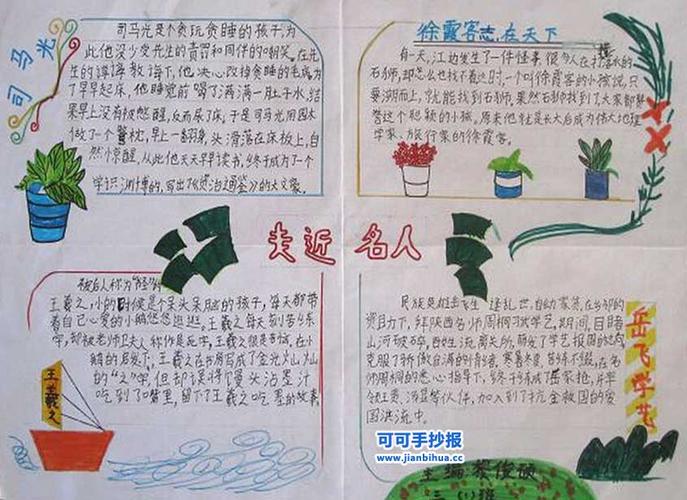 司马光
司马光是个贪玩贪睡的孩子,为
此他没少受先生的责罚和同伴的嘲笑。在先
生的谆谆教诲下,他决心改掉贪睡的毛病,为
了早早起床,他睡觉前喝了满满一肚子水,结
果早上没有被憋醒,反而尿了床,于是司马光用圆木
做了一个警枕,早上一翻身,头滑落在床板上,自
然惊醒,从此他天天早读书,终于成为了一个
学识渊博的,写出《资治通鉴》的大文豪。
徐霞客志在天下
有一天,江边发生了一件怪事,很多人在打落水的
石狮,却怎么也找不着,这时,一个叫徐霞客的小孩说,只
要溯而上,就能找到石狮,果然石狮找到了,大家都赞
誉这个聪颖的小孩,原来他就是长大后成为伟大地理
学家、旅行家的徐霞客。
走近名人
王羲之
王羲之,小的时候是个呆头呆脑的孩子,每天都带
着自己心爱的小鹅悠悠逛逛。王羲之每天刻苦练
字,却被老师卫夫人称作是死字,王羲之很是苦恼,在小
鹅的启发下,王羲之在书房写成了金光灿灿
的“之”字,但却误将馒头沾墨汁
吃到了嘴里,留下了王羲之吃墨的故事。
岳飞学艺
民族英雄岳飞生逢乱世,自幼家贫,在乡邻的
资助下,拜陕西名师周桐习武学艺,期间,目睹
山河破碎,百姓流离失所,萌发了学艺报国的志向,
克服了骄傲自满的情绪。寒暑冬夏,苦练不缀,在名
师周桐的悉心指导下,终于练成了岳家枪,并率
领王贵,汤显等伙伴,加入到了抗金救国的爱
国洪流中。
可可手抄报
www.jianbihua.cc
主编:蔡俊
三(1)班